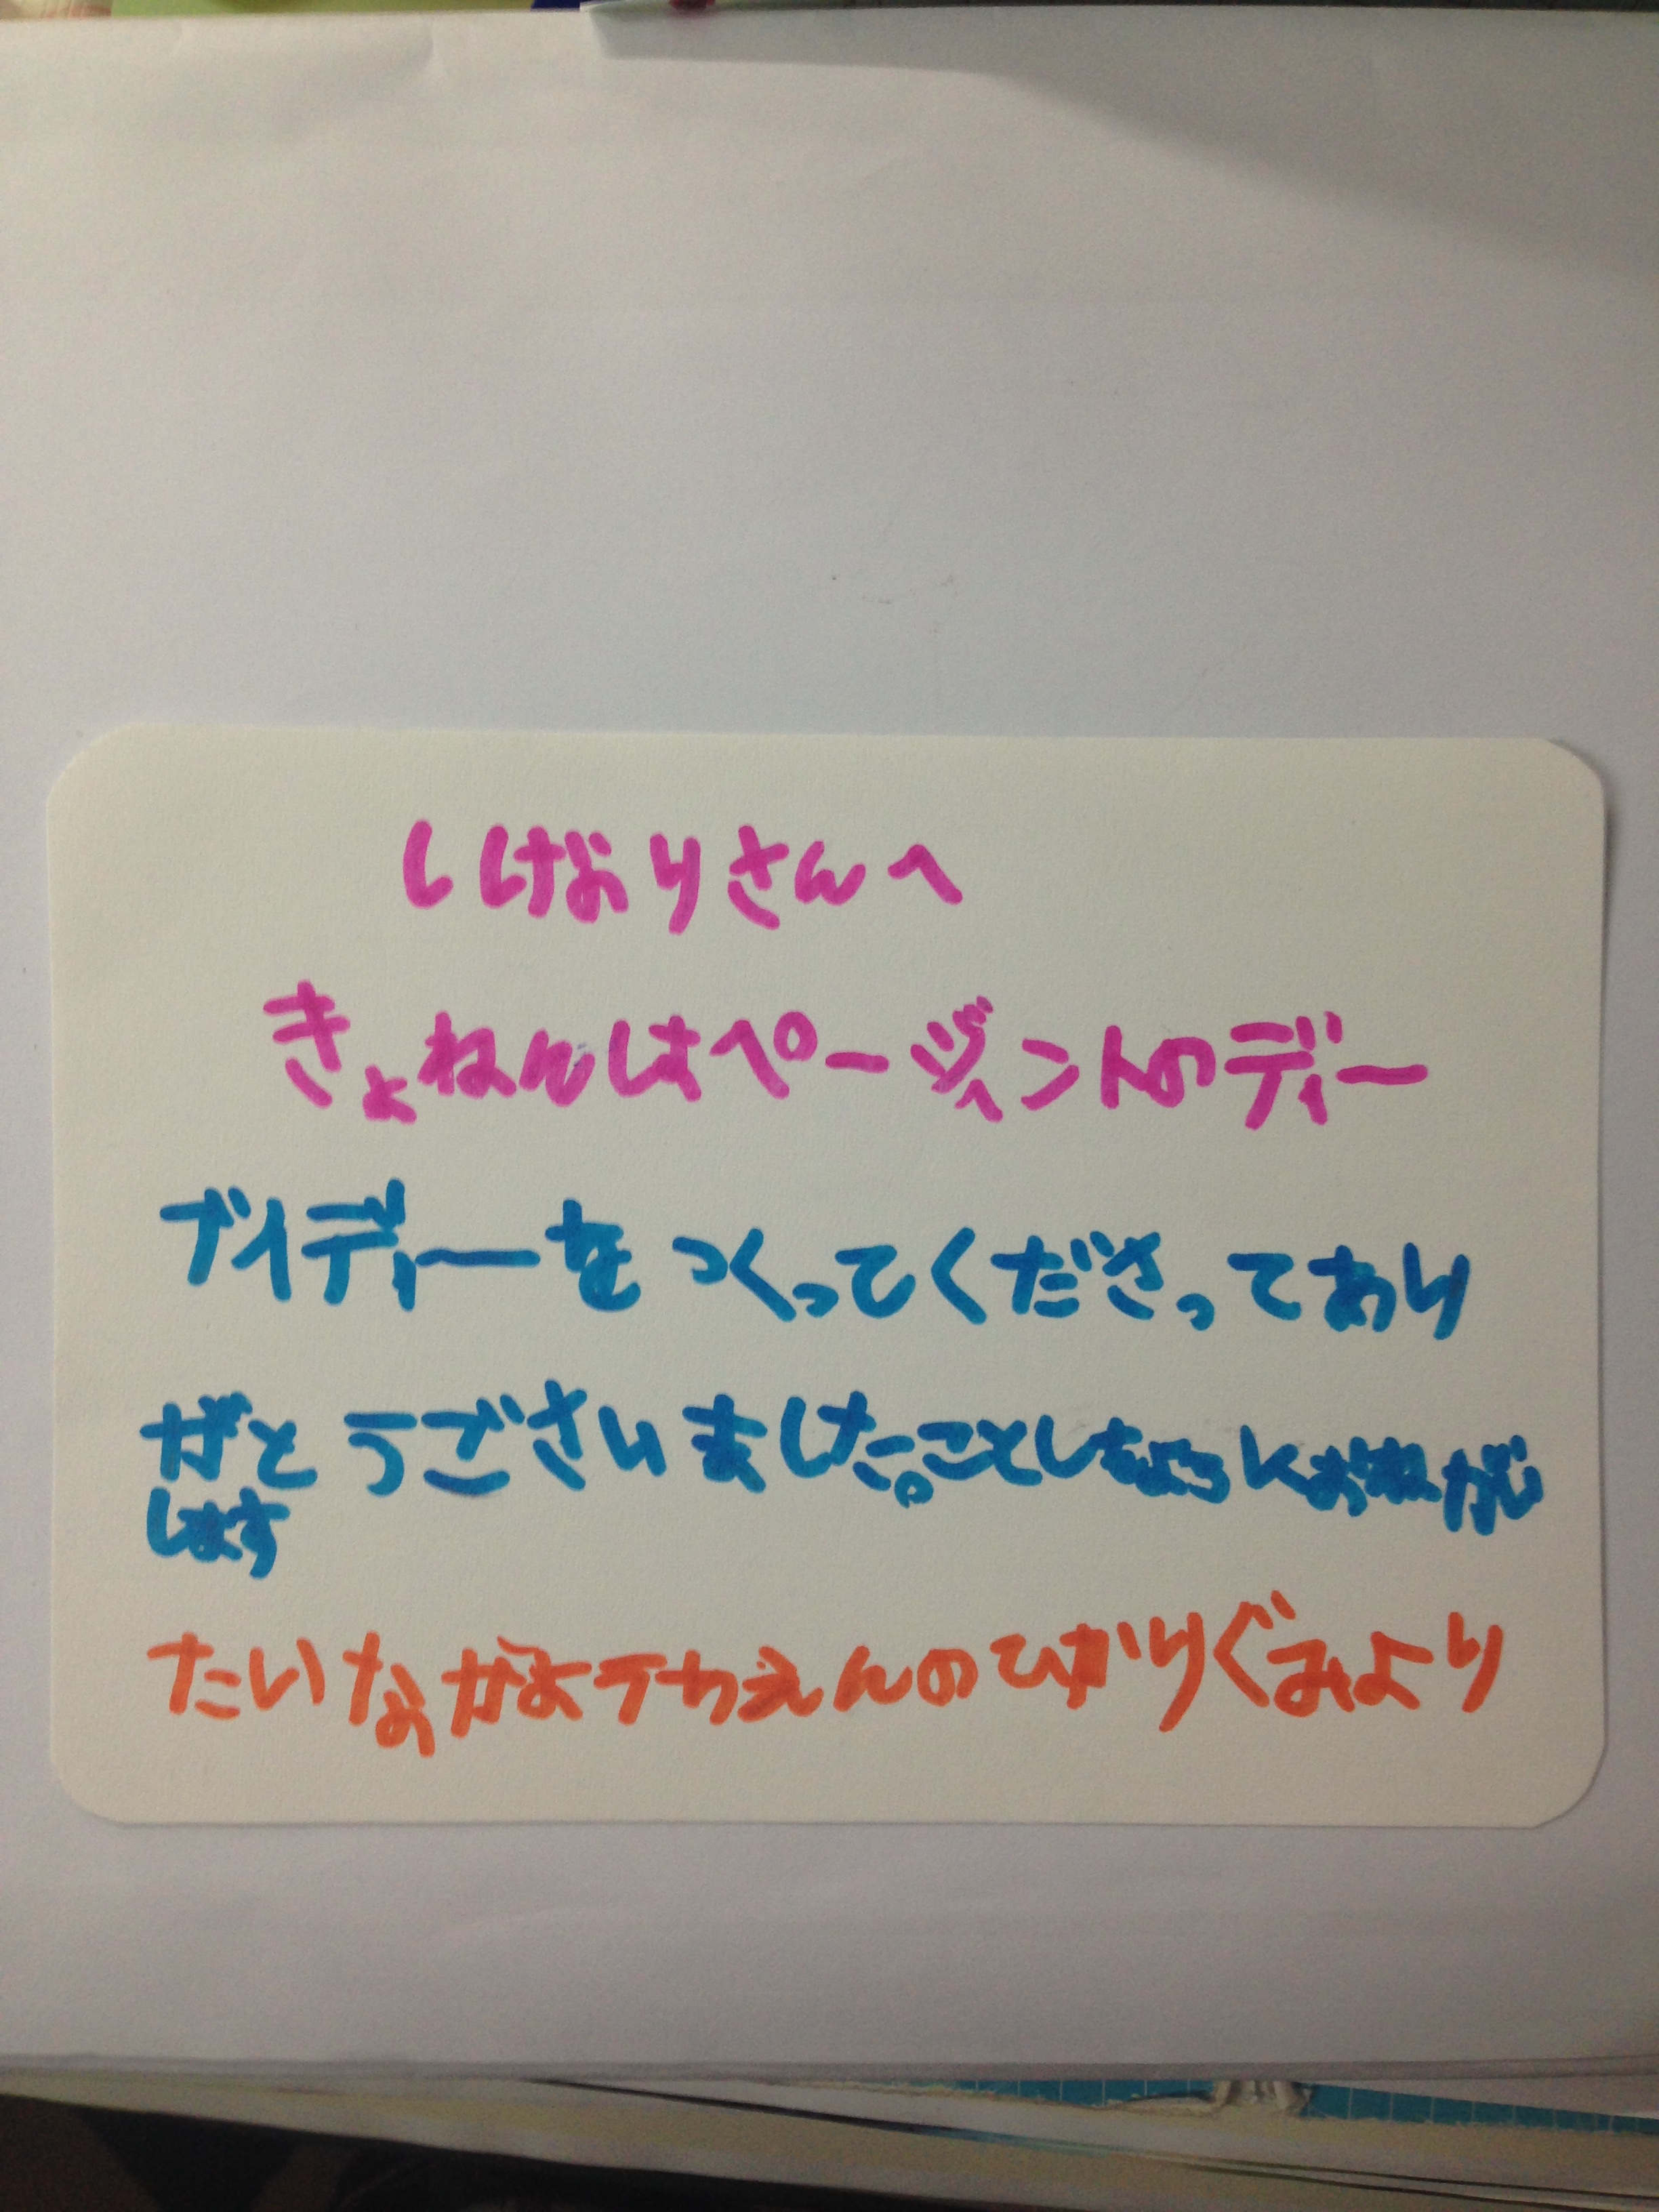 ししばおりさんへ
きょねんはページェントのディー
ブイディーをつくってくださってあり
がとうございました。ことしもよろしくおねがい
します
たいながよチカえんのひかりぐみより